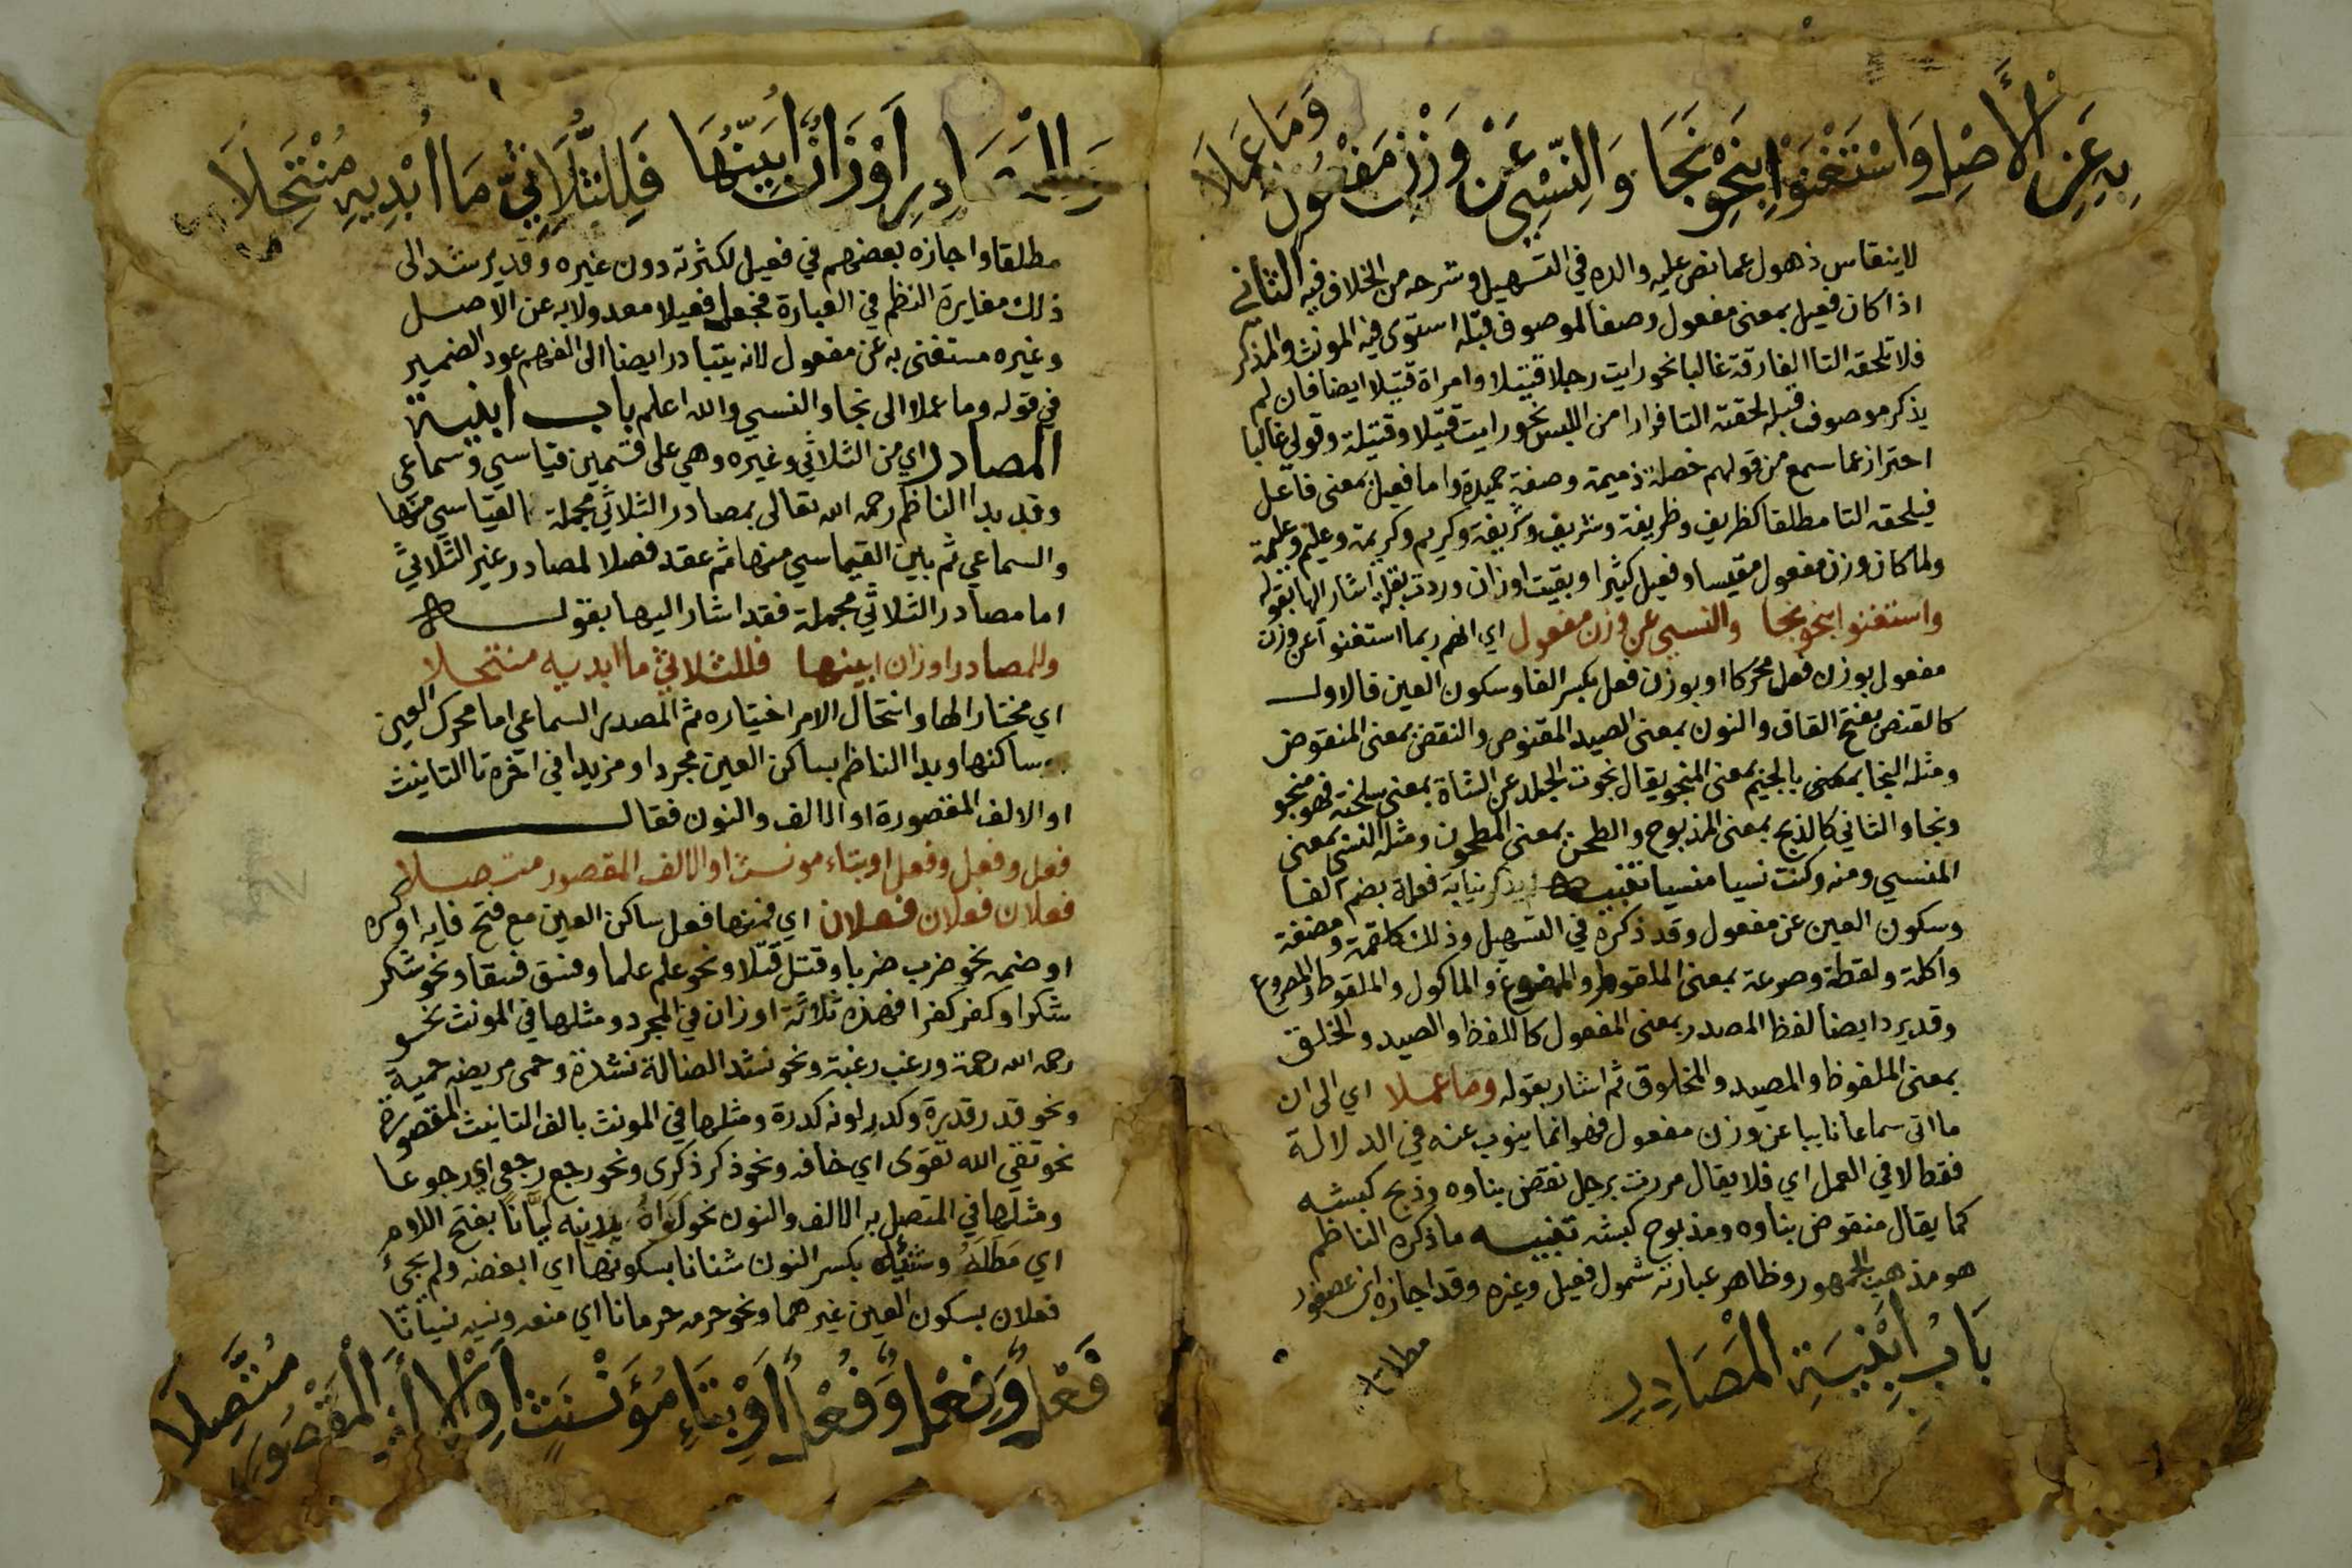 بِهِ عَنِ الْأَصْلِ وَاسْتَغْنَوْا بِنَحْوِ نَجَا وَالنِّسْيِ عَنْ وَزْنِ مَفْعُولٍ وَمَا عَمَلَا
لاينقاس ذهول عما نص عليه والده في التسهيل وشرحه من الخلاف فيه الثاني
اذا كان فعيل بمعنى مفعول وصفا لموصوف قبله استوى فيه المونث والمذكر
فلا تلحقه التا الفارقة غالبا نحو رايت رجلا قتيلا وامراة قتيلا ايضا فان لم
يذكر موصوف قبله لحقته التا فرارا من اللبس نحو رايت قتيلا وقتيلة وقولي غالبا
احترازعما سمع من قولهم خصلة ذميمة وصفة حميدة واما فعيل بمعنى فاعل
فيلحقه التا مطلقا كظريف وظريفة وشريف وشريفة وكريم وكريمة وعليم وعليمة
ولما كان وزن مفعول مقيسا وفعيل كثيرا وبقيت اوزان وردت بقلة اشار الها بقوله
واستغنوا بنحو نجا والنسي عن وزن مفعول اي انهم ربما استغنوا عن وزن
مفعول بوزن فعل محركا او بوزن فعل بكسر الفا وسكون العين فالاول
كالقنص بفتح القاف والنون بمعنى الصيد المقنوص والنقض بمعنى المنقوض
ومثله النجا بمعنى بالجيم بمعنى المنجو يقال نجوت الجلد عن الشاة بمعنى سلخته فهو منجو
ونجا والثاني كالذبح بمعنى المذبوح والطحن بمعنى المطحون ومثله النسي بمعنى
المنسي ومنه وكنت نسيا منسيا تنبيه لم يذكر نيابة فعلة بضم الفا
وسكون العين عن مفعول وقد ذكره في التسهيل وذلك كلقمة ومضغة
واكلة ولقطة وصرعة بمعنى الملقوم والممضوغ والماكول والملقوط والمصروع
وقد يرد ايضا لفظ المصدر بمعنى المفعول كاللفظ والصيد والخلق
بمعنى الملفوظ والمصيد والمخلوق ثم اشار بقوله وما عملا اي الى ان
ما اتى سماعا نايبا عن وزن مفعول فهو انما ينوب عنه في الدلالة
فقط لا في العمل اي فلا يقال مررت برجل نقض بناوه وذبح كبشه
كما يقال منقوض بناوه ومذبوح كبشه تنبيه ما ذكره الناظم
هو مذهب الجمهور وظاهر عبارته شمول فعيل وغيره وقد اجازه ابن عصفور
مطلقا
بَابُ أَبْنِيَةِ الْمَصَادِرِ
وَلِلْمَصَادِرِ أَوْزَانٌ أُبَيِّنُهَا فَلِلثُّلَاثِيِّ مَا أُبْدِيهِ مُنْتَحِلَا
مطلقا واجازه بعضهم في فعيل لكثرته دون غيره وقد يرشد الى
ذلك مغايرة النظم في العبارة فجعل فعيلا معدولا به عن الاصل
وغيره مستغنى به عن مفعول لانه يتبادر ايضا الى الفهم عود الضمير
في قوله وما عملا الى نجا والنسي والله اعلم باب ابنية
المصادر اي من الثلاثي وغيره وهي على قسمين قياسي وسماعي
وقد بدا الناظم رحمه الله تعالى بمصادر الثلاثي مجملة القياسي منها
والسماعي ثم بين القياسي منها ثم عقد فصلا لمصادر غير الثلاثي
اما مصادر الثلاثي مجملة فقد اشار اليها بقوله
وللمصادر اوزان ابينها فللثلاثي ما ابديه منتحلا
اي مختارا لها وانتحال الامر اختياره ثم المصدر السماعي اما محرك العين
وساكنها وبدا الناظم بساكن العين مجردا ومزيدا في اخره تا التانيث
او الالف المقصورة او الالف والنون فقال
فعل وفعل وفعل او بتاء مونث او الالف المقصور متصلا
فعلان فعلان فعلان اي فمنها فعل ساكن العين مع فتح فايه او كسره
او ضمه نحو ضرب ضربا وقتل قتلا ونحو علم علما وفسق فسقا ونحو شكر
شكرا وكفر كفرا فهذه ثلاثة اوزان في المجرد ومثلها في المونث نحو
رحمه الله رحمة ورغب رغبة ونحو نشد الضالة نشدة وحمى مريضه حمية
ونحو قدر قدرة وكدر لونه كدرة ومثلها في المونث بالف التانيث المقصورة
نحو تقي الله تقوى اي خافه ونحو ذكر ذكرى ونحو رجع رجعى اي رجوعا
ومثلها في المتصل به الالف والنون نحو لَوَاهُ بدينه لَيَّانًا بفتح اللام
اي مَطَلَهُ وشنئك بكسر النون شنانا بسكونها اي ابغضه ولم يجئ
فعلان بسكون العين غيرهما ونحو حرمه حرمانا اي منعه ونسيه نسيانا
فَعْلٌ وَفِعْلٌ وَفُعْلٌ أَوْ بِتَاءِ مُؤَنَّثٍ أَوِ الْأَلِفِ الْمَقْصُورِ مُتَّصِلَا